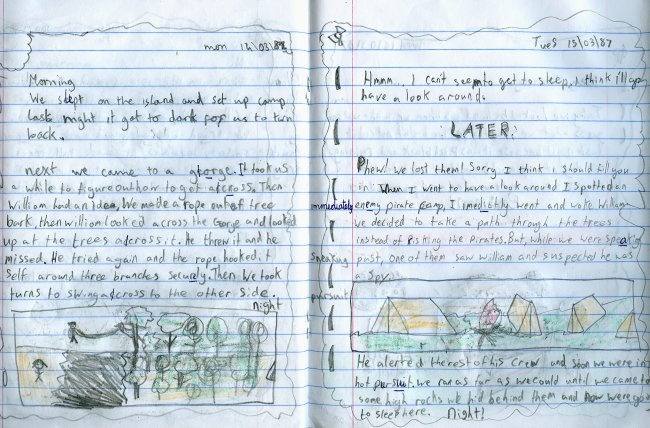 mon 14/03/87
Morning
We slept on the island and set up camp
last night it got to dark for us to turn
back.
next we came to a gorge. It took us
a while to figure out how to get across. Then
William had an idea. We made a rope out of tree
bark, then william looked across the Gorge and looked
up at the trees adcross it. He threw it and he
missed. He tried again and the rope hooked it
self around three branches securly. Then We took
turns to swing across to the other side.
Night
Tues 15/03/87
Hmmm... I can't seem to get to sleep, I think i'll go
have a look around.
: LATER:
Phew! we lost them! Sorry I think i should fill you
in! When I went to have a look around I spotted an
immediately enemy pirate camp, I imediatly went and woke William
we decided to take a path through the trees
instead of risking the Pirates. But, while we were speaking
sneaking past, one of them saw William and suspected he was
a spy.
pursuit
He alerted the rest of his crew and soon we were in
hot pursuit. we ran as far as we could until we came to
some high rocks we hid behind them and now were going
to sleep here. Night!